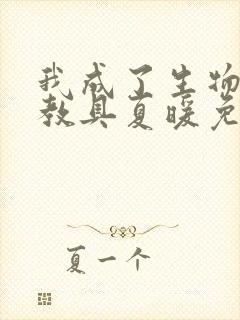 我成了生物
教具夏暖免
夏一个